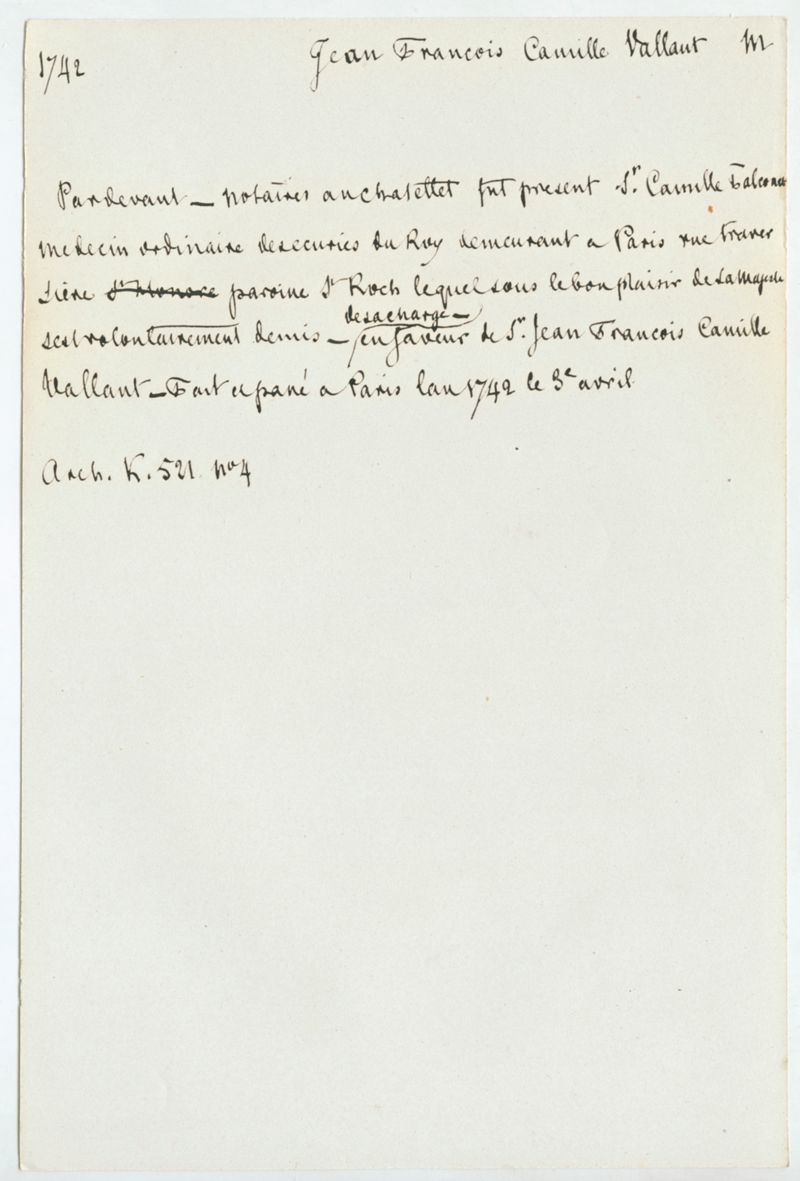 1742
Jean François Camille Vallant M
Pardevant — notaires au chatellet fut present Sr. Camille Falconet
medecin ordinaire des ecuries du Roy demeurant a Paris rue traver
siere St Honore paroisse St Roch lequel sous le bon plaisir de sa Majeste
sest volontairement demis — de sa charge — en faveur de Sr. Jean François Camille
Vallant — Fait et passé a Paris lan 1742 le 3e avril
Arch. K. 521 no 4